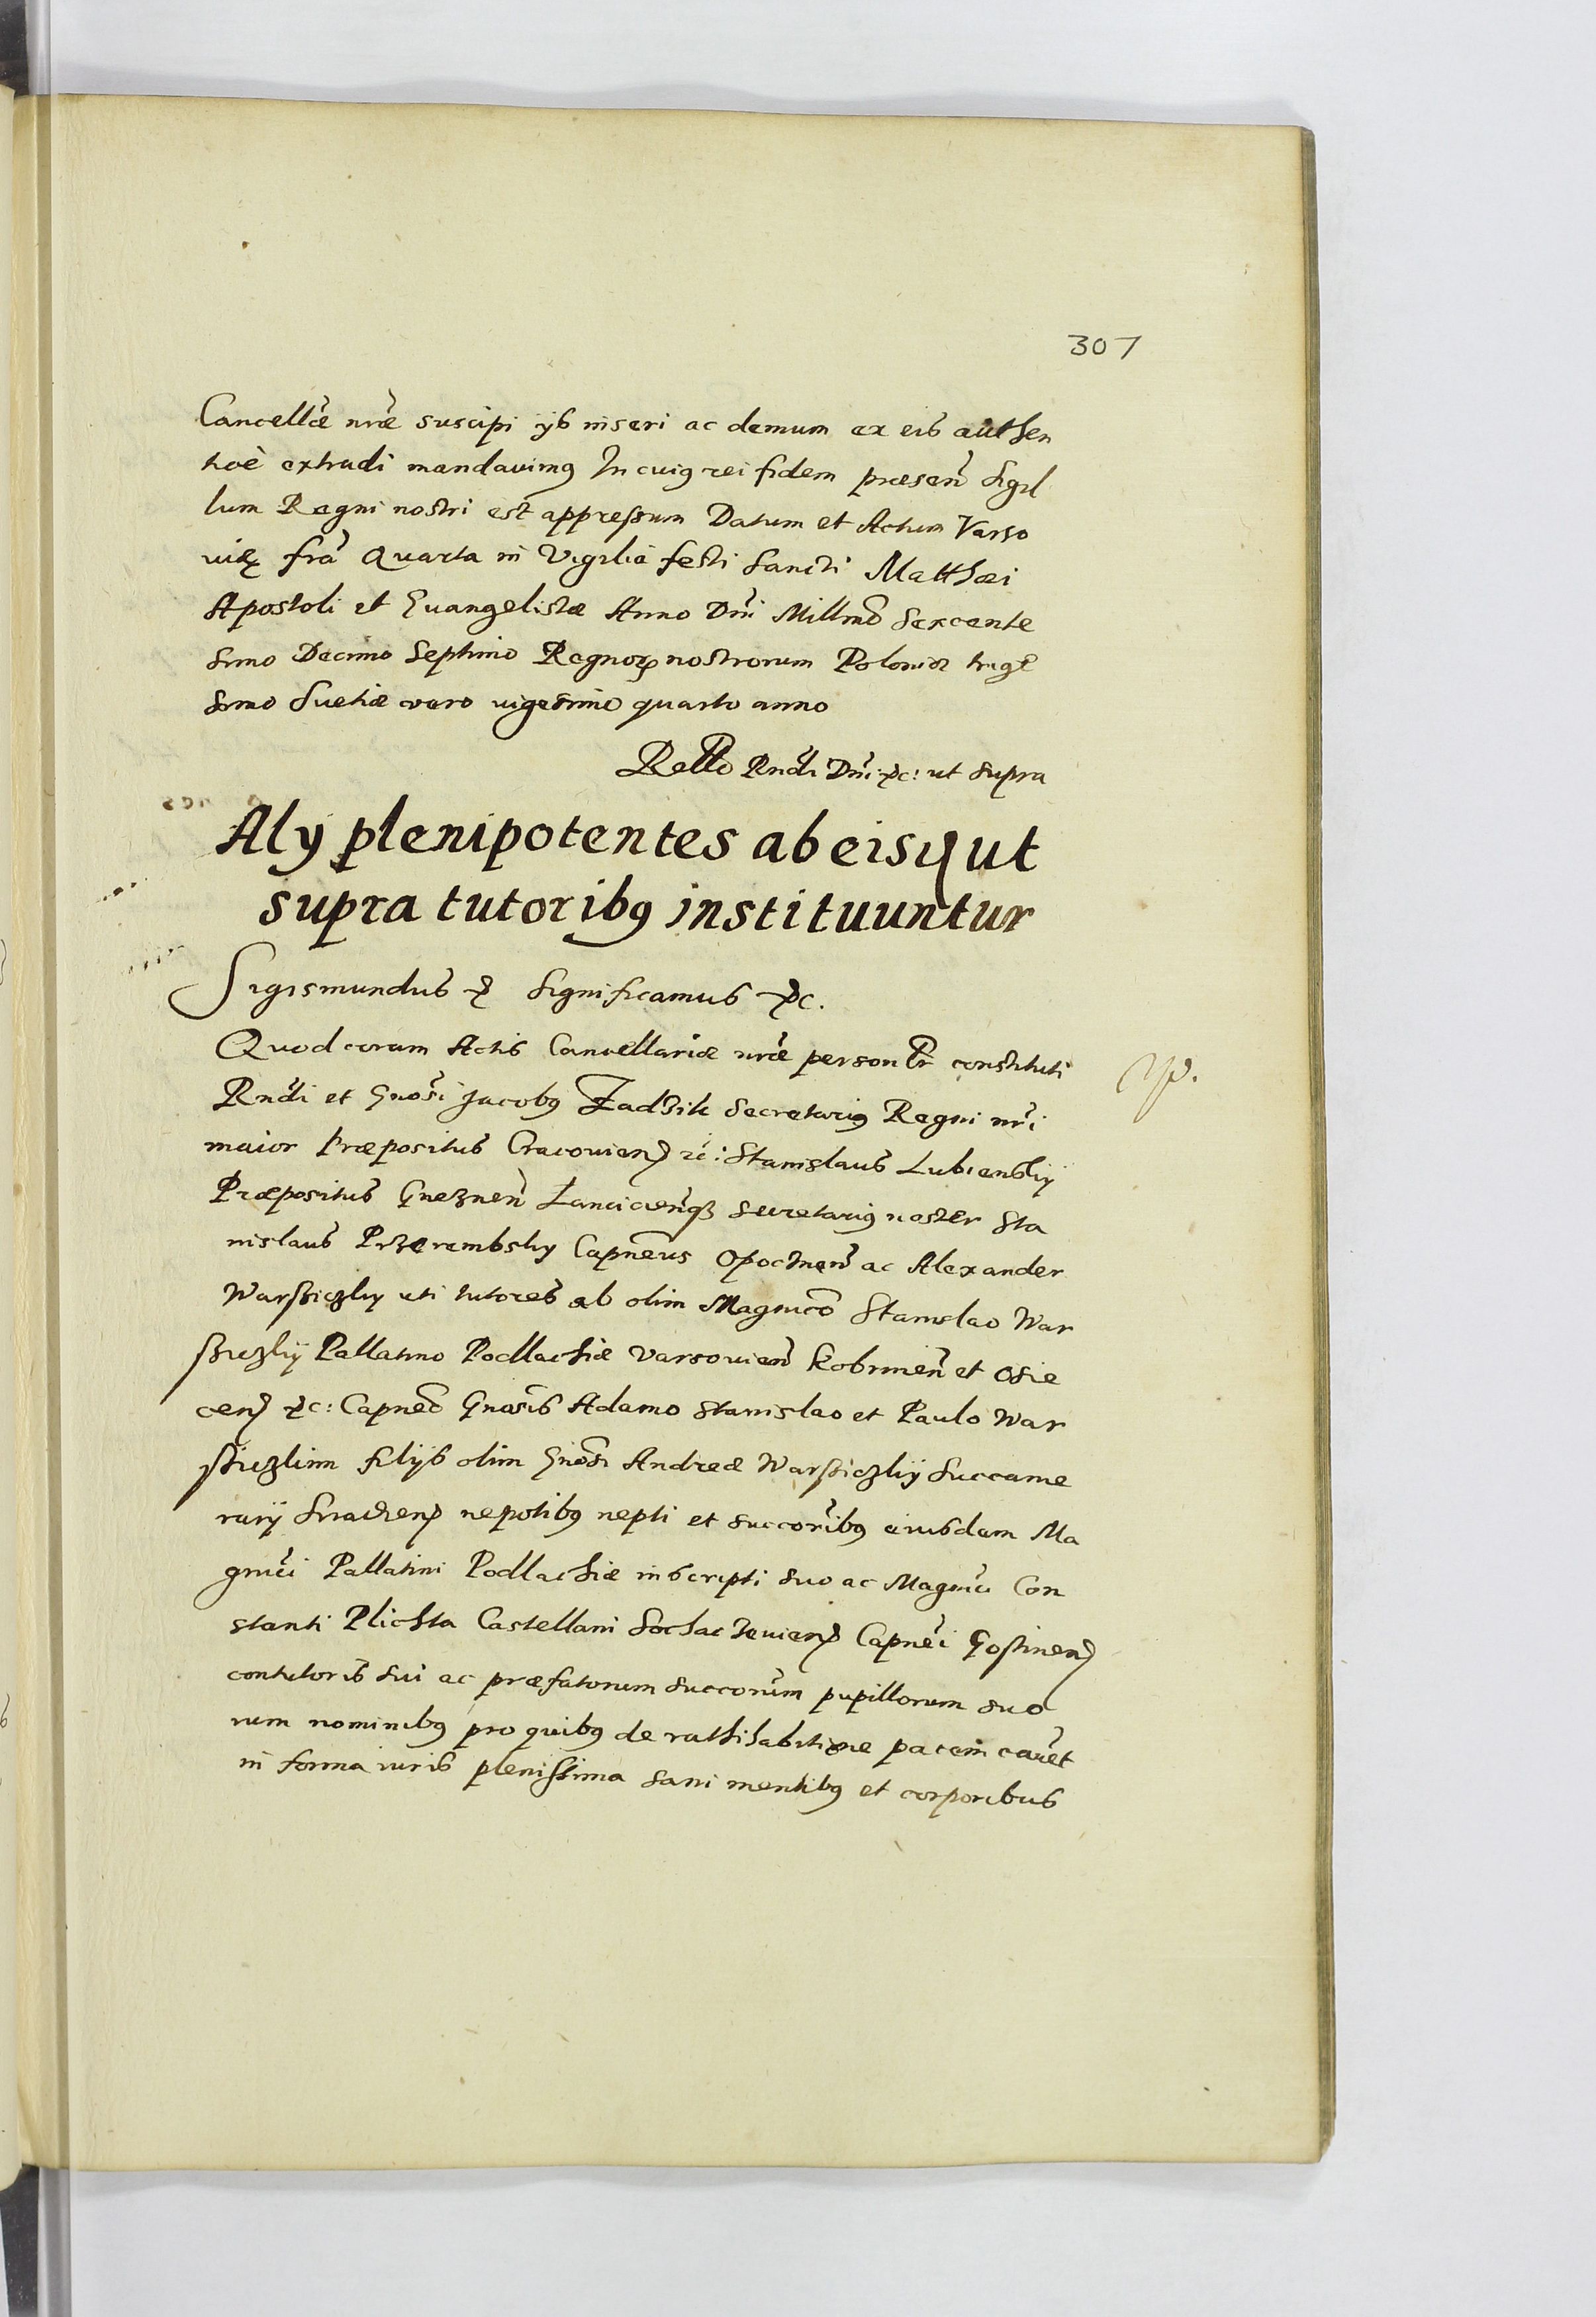 307
Cancellæ nræ suscipi ijs inseri ac demum ex eis authen
ticè extradi mandauimꝰ In cuiꝰ rei fidem præsen̄ Sigil
lum Regni nostri est appressum Datum et Actum Varso
uiæ fra Quarta in Vigilia festi Sancti Matthæi
Apostoli et Euangelistæ Anno Dni Millmo Sexcente
simo Decimo Septimo Regnorꝝ nostrorum Poloniæ trige
simo Suetiæ vero vigesimo quarto anno
Rello Rndi Dni ꝛc: ut supra
Alÿ plenipotentes ab eisq ut
supra tutoribꝰ instituuntur
Sigismundus ꝛ Significamus ꝛc.
Quod coram Actis Cancellariæ nræ person Pr constituti
Rndi et Gnosi Jacobꝰ Zadzik Secretariꝰ Regni nri
maior Præpositus Cracouien ꝛc: Stanislaus Lubienskÿ
Præpositus Gneznen Lanciciensqꝫ secretariꝰ noster Sta
nislaus Przerembsky Capneus Opocznen ac Alexander
Warszickÿ uti tutores ab olim Magnico Stanislao War
szickÿ Pallatino Podlachiæ Varsouien Kobrinen et Osie
cen ꝛc: Capneo Gnosis Adamo Stanislao et Paulo War
szickim filijs olim Gnosi Andreæ Warszickÿ Succame
rarij Siradien nepotibꝰ nepti et succoribꝰ eiusdem Ma
gnici Pallatini Podlachiæ inscripti suo ac Magnici Con
stanti Plichta Castellani Sochaczeuien Capnei Gostinen
contutoris sui ac præfatorum succorum pupillorum suo
rum nominibꝰ pro quibꝰ de rathihabitione pacem cauet
in forma iuris plenissima sani mentibꝰ et corporibus